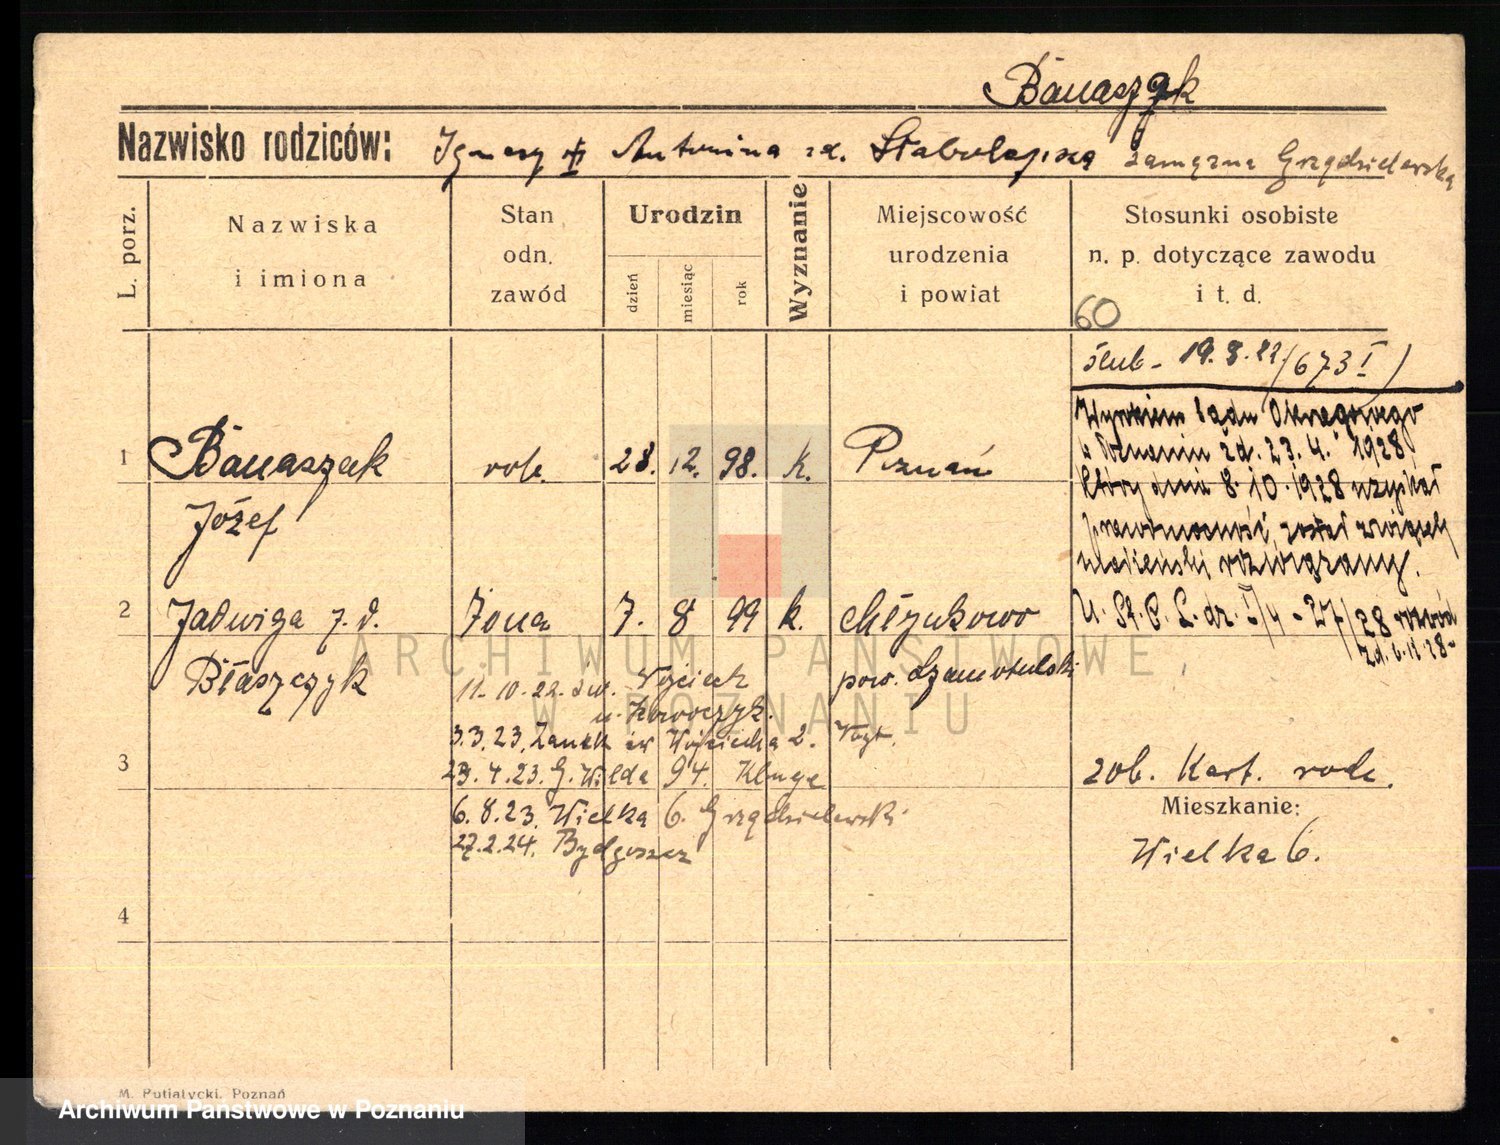 Banaszak
Nazwisko rodziców: Ignacy Antonina zd. zamężna Grządzielewska
L. porz.
Nazwiska
i imiona
Stan
odn.
zawód
Urodzin
dzień
miesiąc
rok
Wyznanie
Miejscowość
urodzenia
i powiat
Stosunki osobiste
n. p. dotyczące zawodu
i t. d.
60
ślub - 19.8.22 /673 I)
Wyrokiem Sądu Okręgowego
w Poznaniu z d. 23. 4. 1928
który dnia 8. 10. 1928 uzyskał
prawomocność, został związek
małżeński rozwiązany.
U. St. C. L. dz. I/4 - 27/28 rozwód
zd. 6.11.28-
1 Banaszak rob. 28. 12. 98. K. Poznań
Józef
2 Jadwiga z. d. żona 7. 8 99 k.
Błaszczyk pow. Szamotulski
11-10-22. św. Wojciech
u. Kowoczyk.
3.3.23. Zanek św Wojciecha 2. Vogt.
3 23.4.23. G. Wilda 94. Kluge
6.8.23. Wielka 6. Grządzielewski
27.2.24. Bydgoszcz
zob. Kart. rodz.
Mieszkanie:
Wielka 6.
4
M. Putiatycki, Poznań
ARCHIWUM PAŃSTWOWE
W POZNANIU
Archiwum Państwowe w Poznaniu